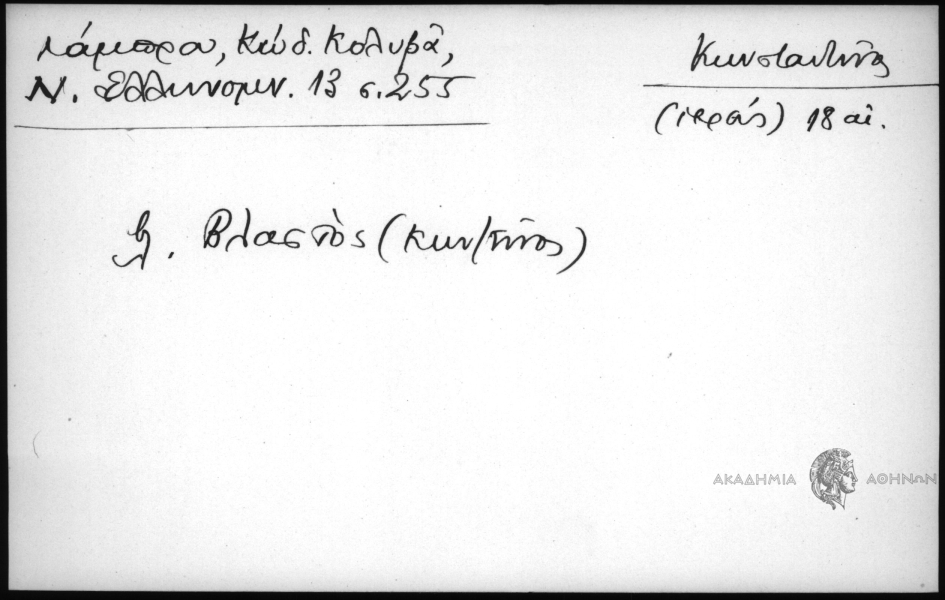 Λάμπρου, Κώδ. Κολυβᾶ,
Ν. Ἑλληνομν. 13 σ. 255
Κωνσταντῖνος
(ἱερεύς) 18 αἰ.
Βλαστὸς (Κων/τῖνος)
ΑΚΑΔΗΜΙΑ ΑΘΗΝΩΝ